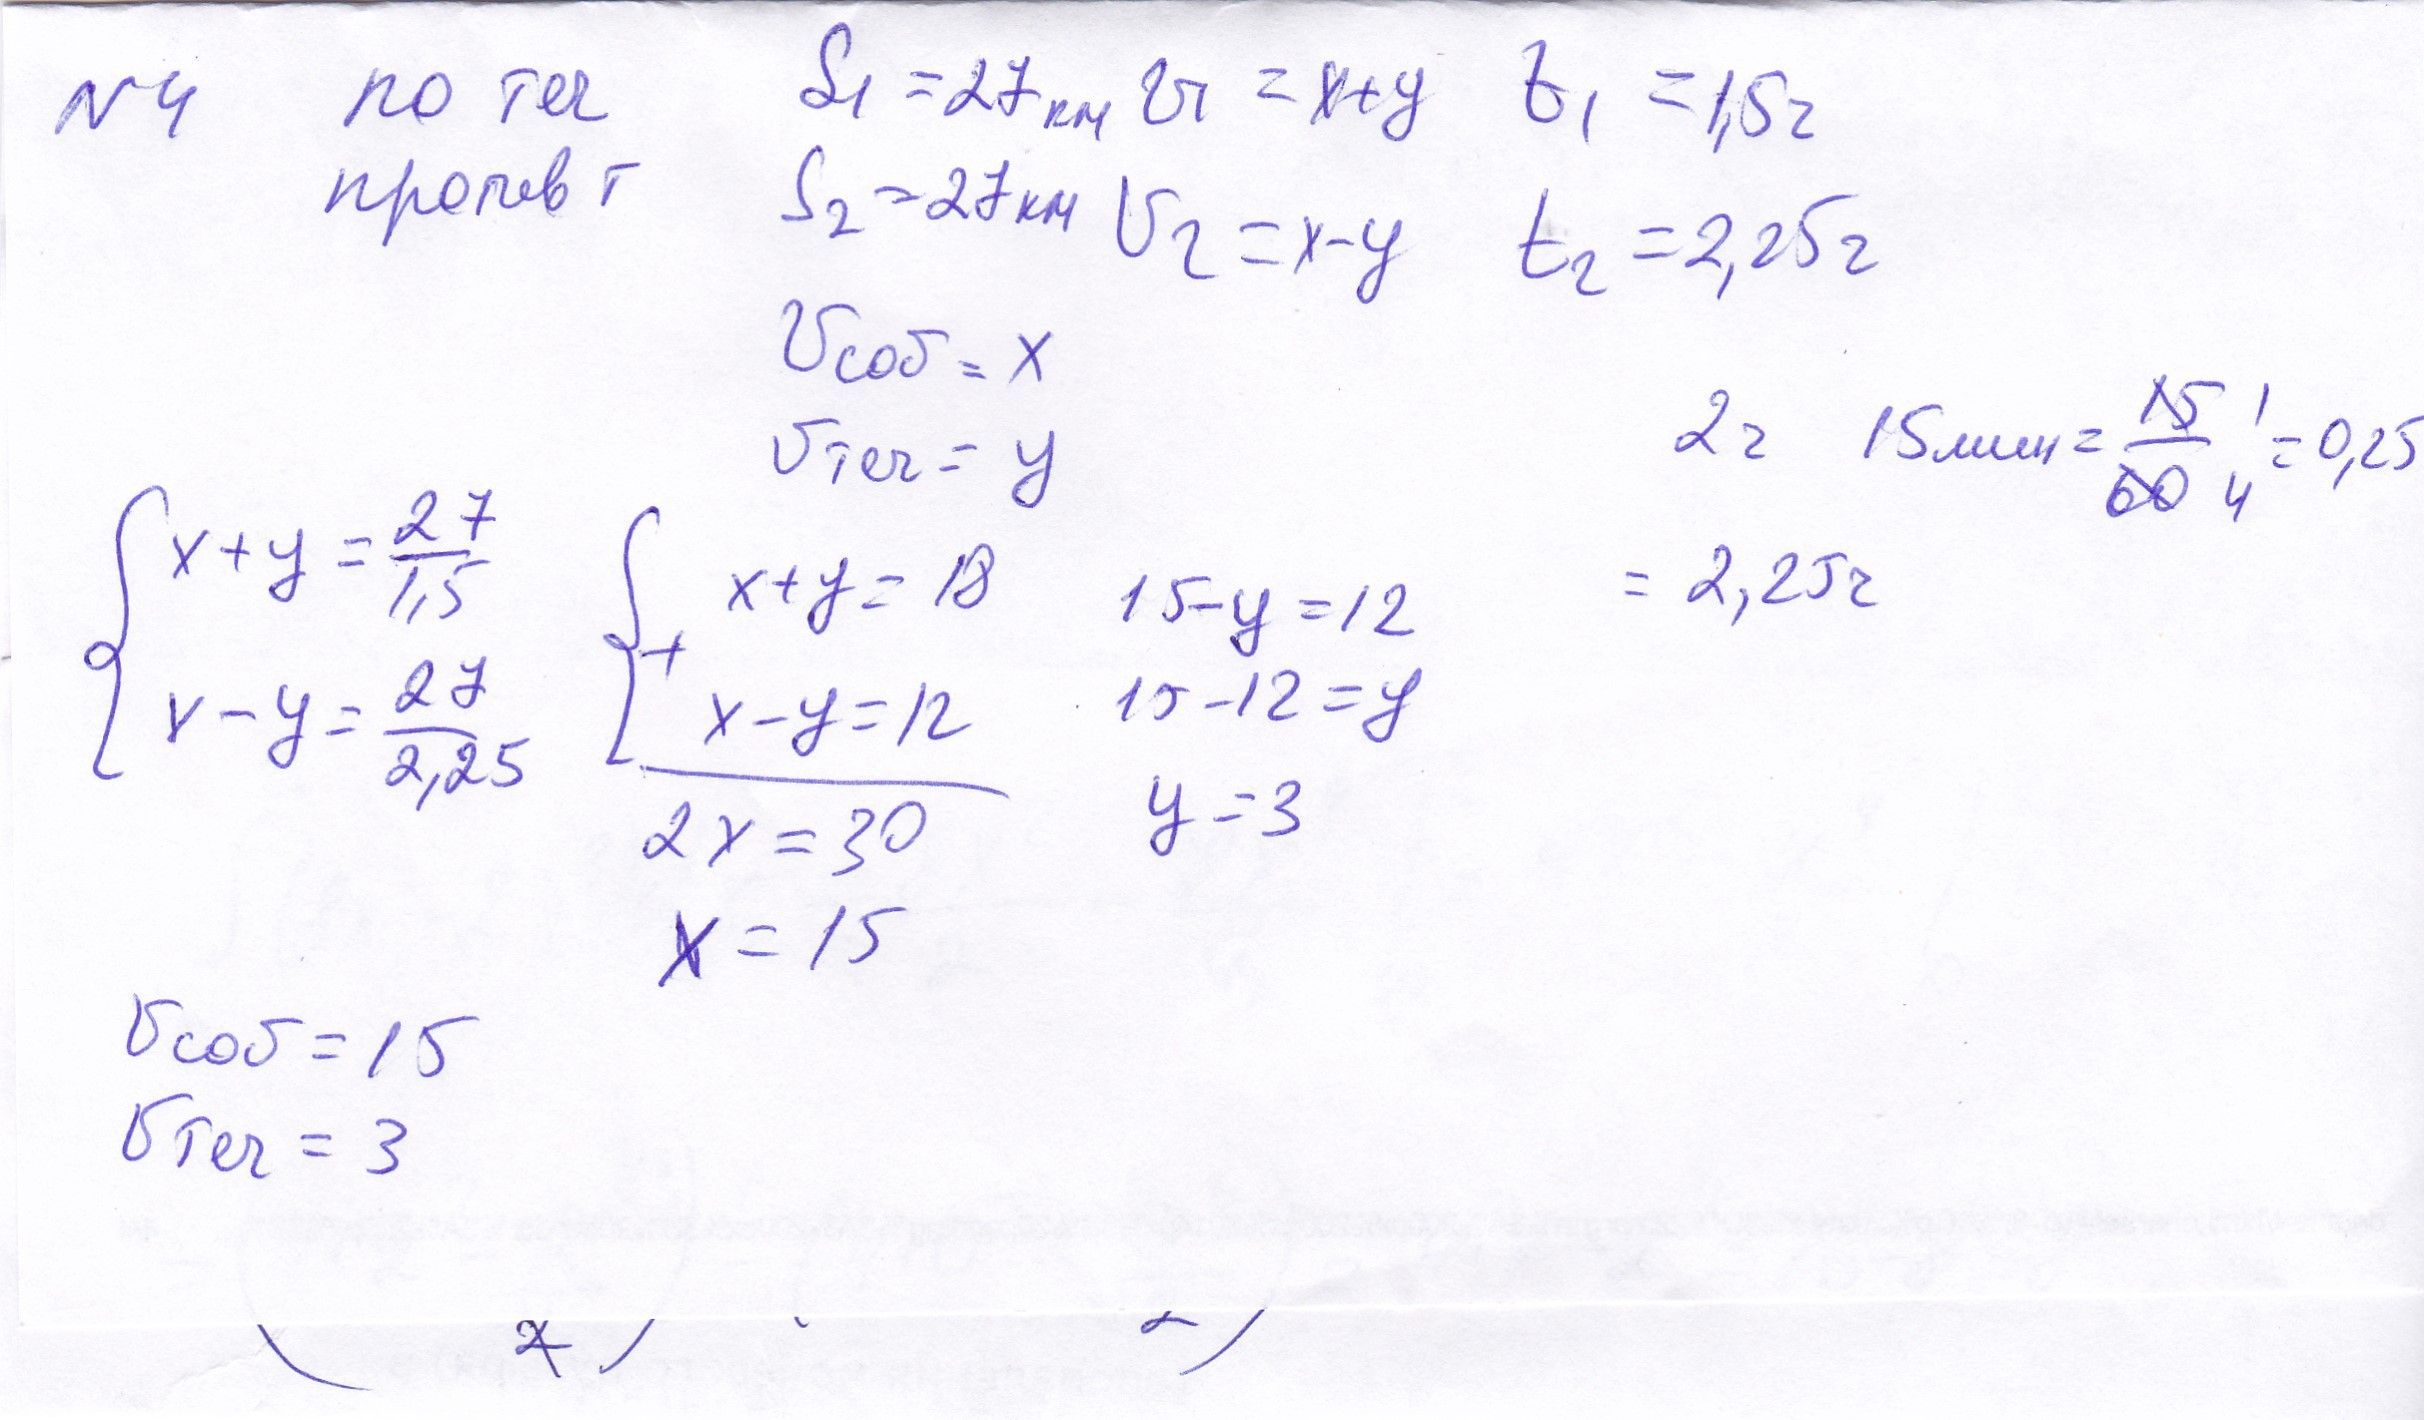 N4 по теч S1 = 27 км V1 = x+y t1 = 1,5ч
против т S2 = 27 км V2 = x-y t2 = 2,25ч
Vсоб = x
Vтеч = y
2ч 15мин = 15/60 1/4 = 0,25
= 2,25ч
x+y = 27/1,5
x-y = 27/2,25
x+y = 18
+
x-y = 12
2x = 30
x = 15
15-y = 12
15-12 = y
y = 3
Vсоб = 15
Vтеч = 3